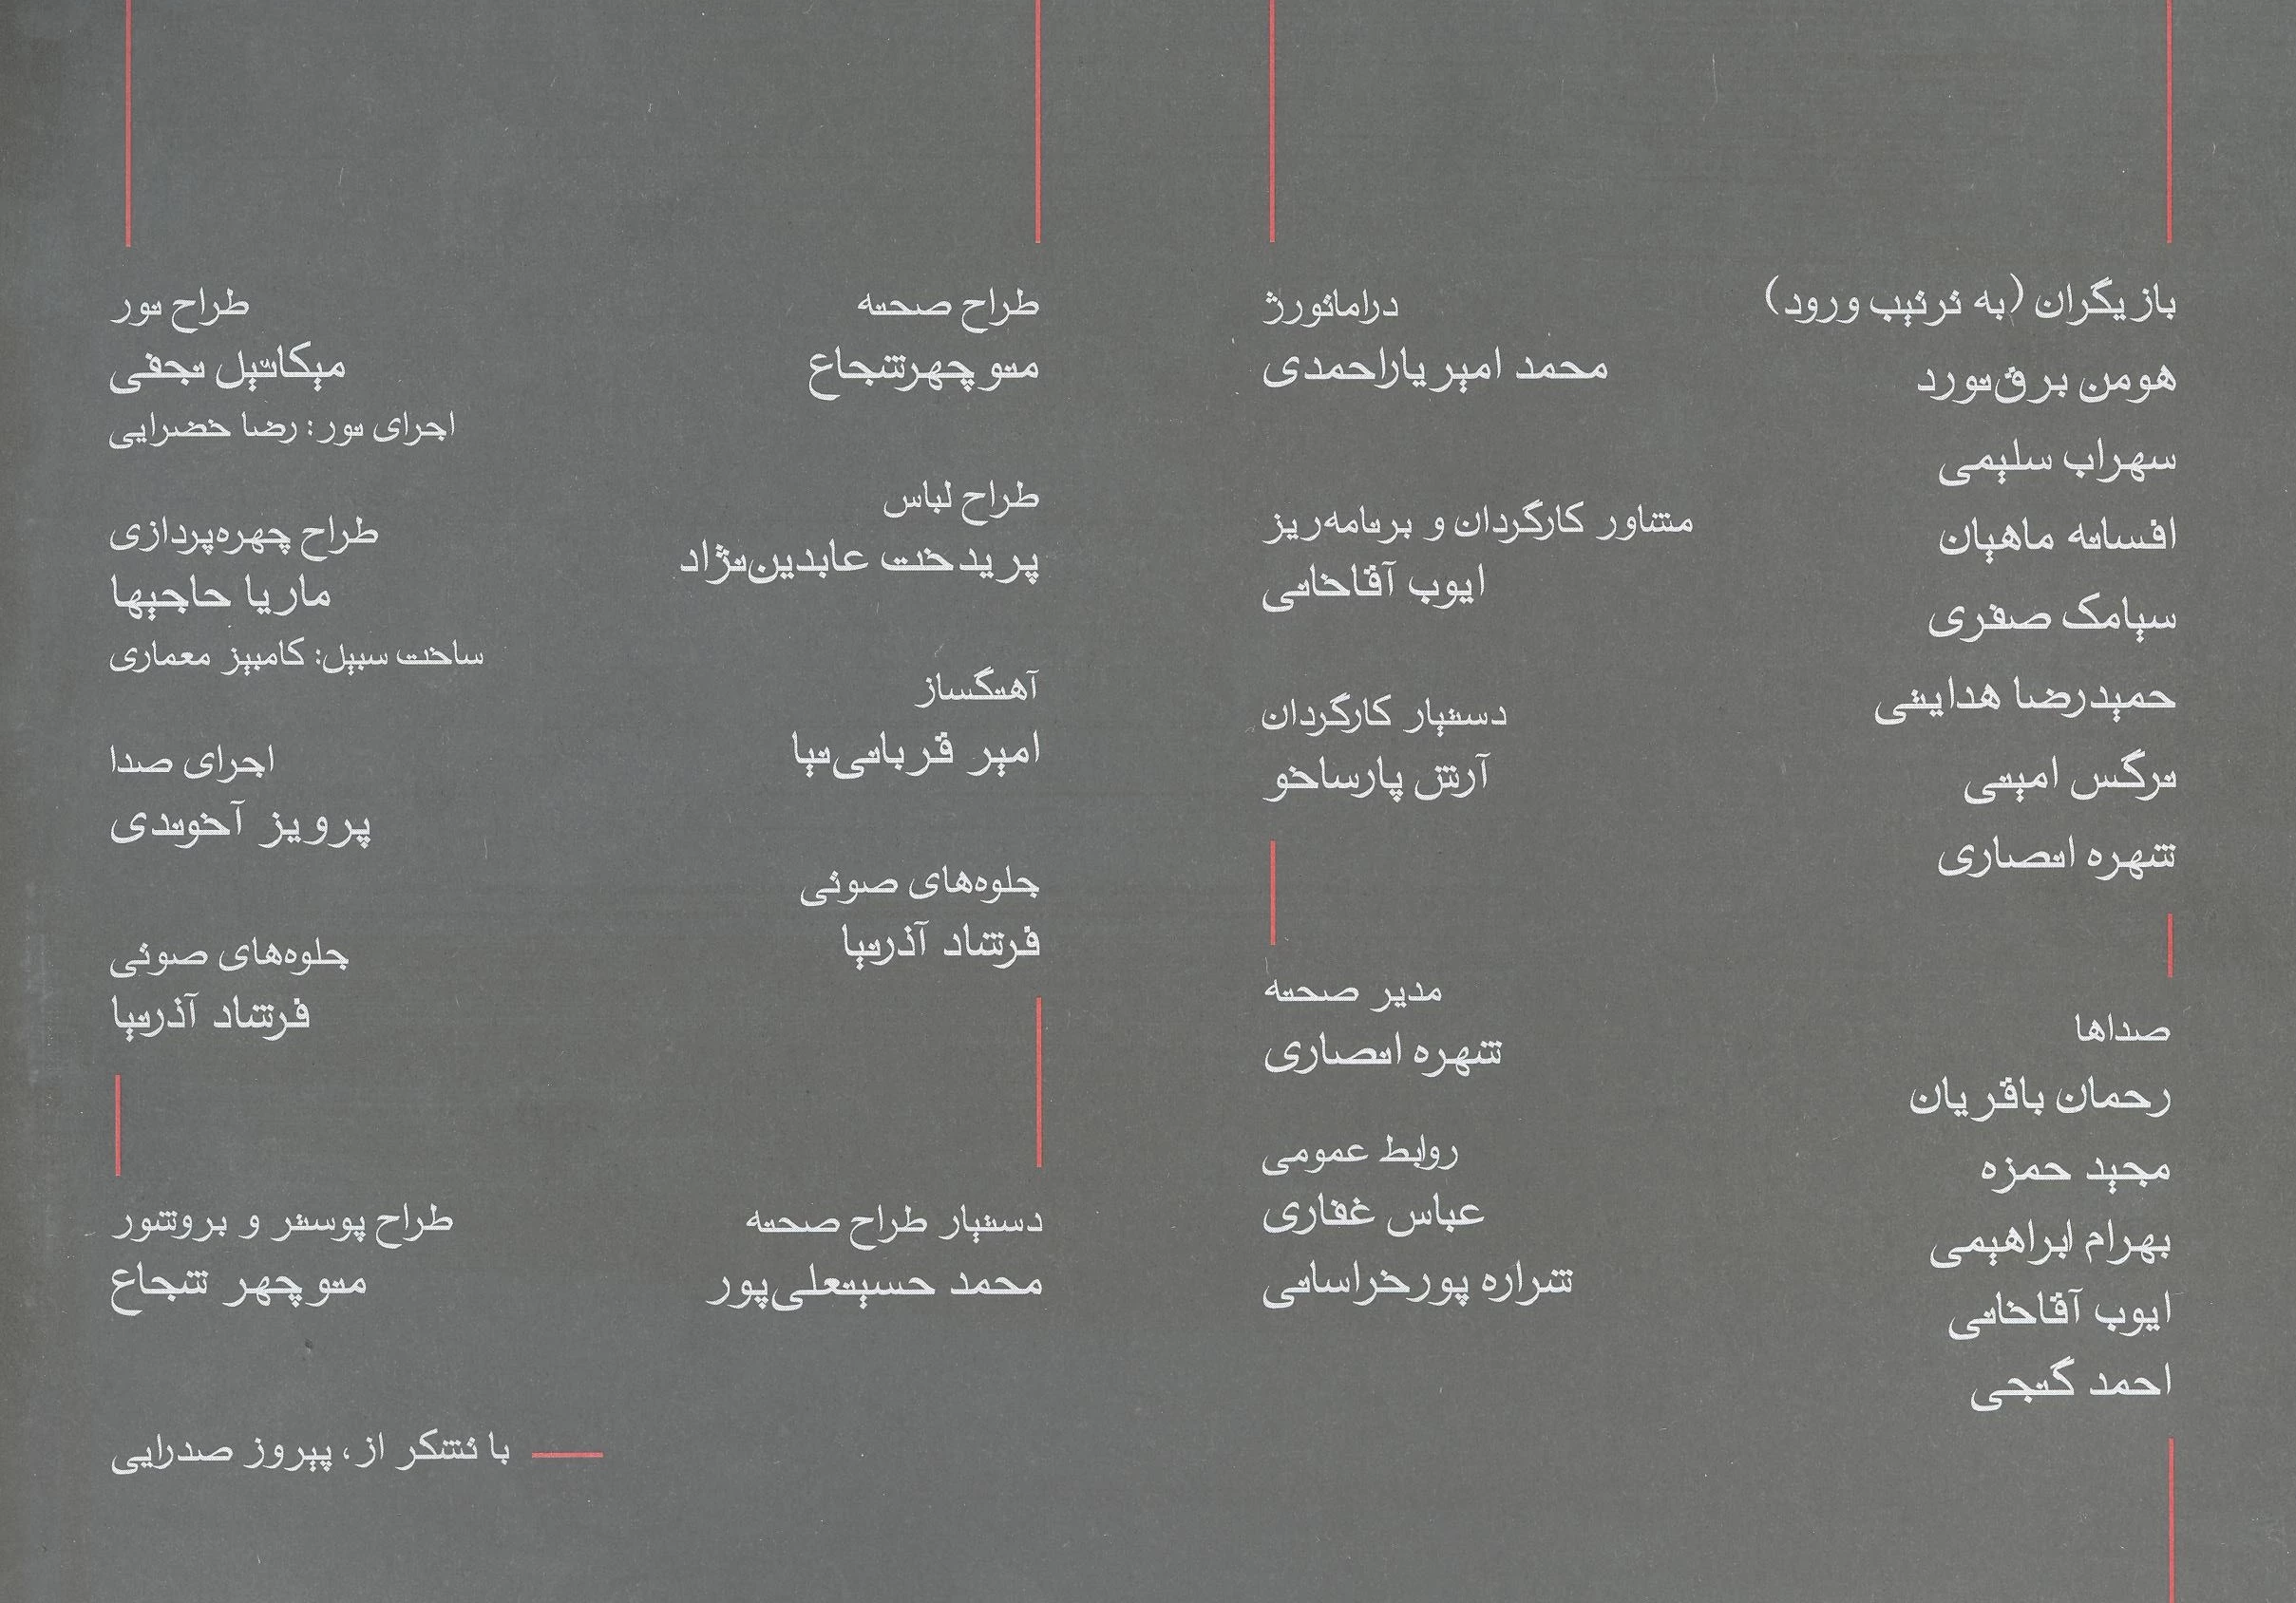 بازیگران (به ترتیب ورود)
هومن برق‌نورد
سهراب سلیمی
افسانه ماهیان
سیامک صفری
حمیدرضا هدایتی
نرگس امینی
شهره انصاری
صداها
رحمان باقریان
مجید حمزه
بهرام ابراهیمی
ایوب آقاخانی
احمد گنجی
دراماتورژ
محمد امیریاراحمدی
مشاور کارگردان و برنامه‌ریز
ایوب آقاخانی
دستیار کارگردان
آرش پارساخو
مدیر صحنه
شهره انصاری
روابط عمومی
عباس غفاری
شراره پورخراسانی
طراح صحنه
منوچهرشجاع
طراح لباس
پریدخت عابدین‌نژاد
آهنگساز
امیر قربانی‌نیا
جلوه‌های صوتی
فرشاد آذرنیا
دستیار طراح صحنه
محمد حسینعلی‌پور
طراح نور
میکائیل نجفی
اجرای نور: رضا خضرایی
طراح چهره‌پردازی
ماریا حاجیها
ساخت سبیل: کامبیز معماری
اجرای صدا
پرویز آخوندی
جلوه‌های صوتی
فرشاد آذرنیا
طراح پوستر و بروشور
منوچهر شجاع
با تشکر از، پیروز صدرایی